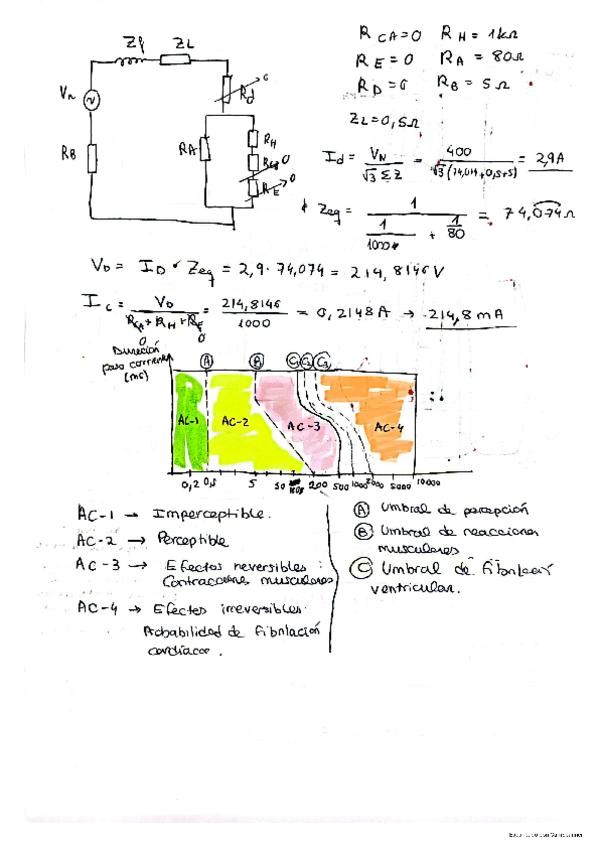 Zf ZL
R CA=0 R H = 1kΩ
R E = 0 R A = 80Ω
R D = 0 R B = 5Ω
ZL=0,5Ω
Vn
Rd 0
RB
RA
RH
RCA 0
RE 0
Id = VN / √3 ΣZ = 400 / √3(74,074+0,5+5) = 2,9A
Zeq = 1 / (1/1000 + 1/80) = 74,074Ω
VD = ID · Zeq = 2,9 · 74,074 = 214,8146 V
I c = VD / (RCA + RH + RE) = 214,8146 / 1000 = 0,2148A → 214,8 mA
0 0
Duración
paso corriente
(ms)
A B C1 C2 C3
AC-1 AC-2 AC-3 AC-4
0,2 0,5 5 50 200 500 1000 2000 5000 10000
AC-1 → Imperceptible.
AC-2 → Perceptible
AC-3 → Efectos reversibles:
Contracciones musculares
AC-4 → Efectos irreversibles.
Probabilidad de fibrilación
cardiaca.
A Umbral de percepción
B Umbral de reacciones
musculares
C Umbral de fibrilación
ventricular.